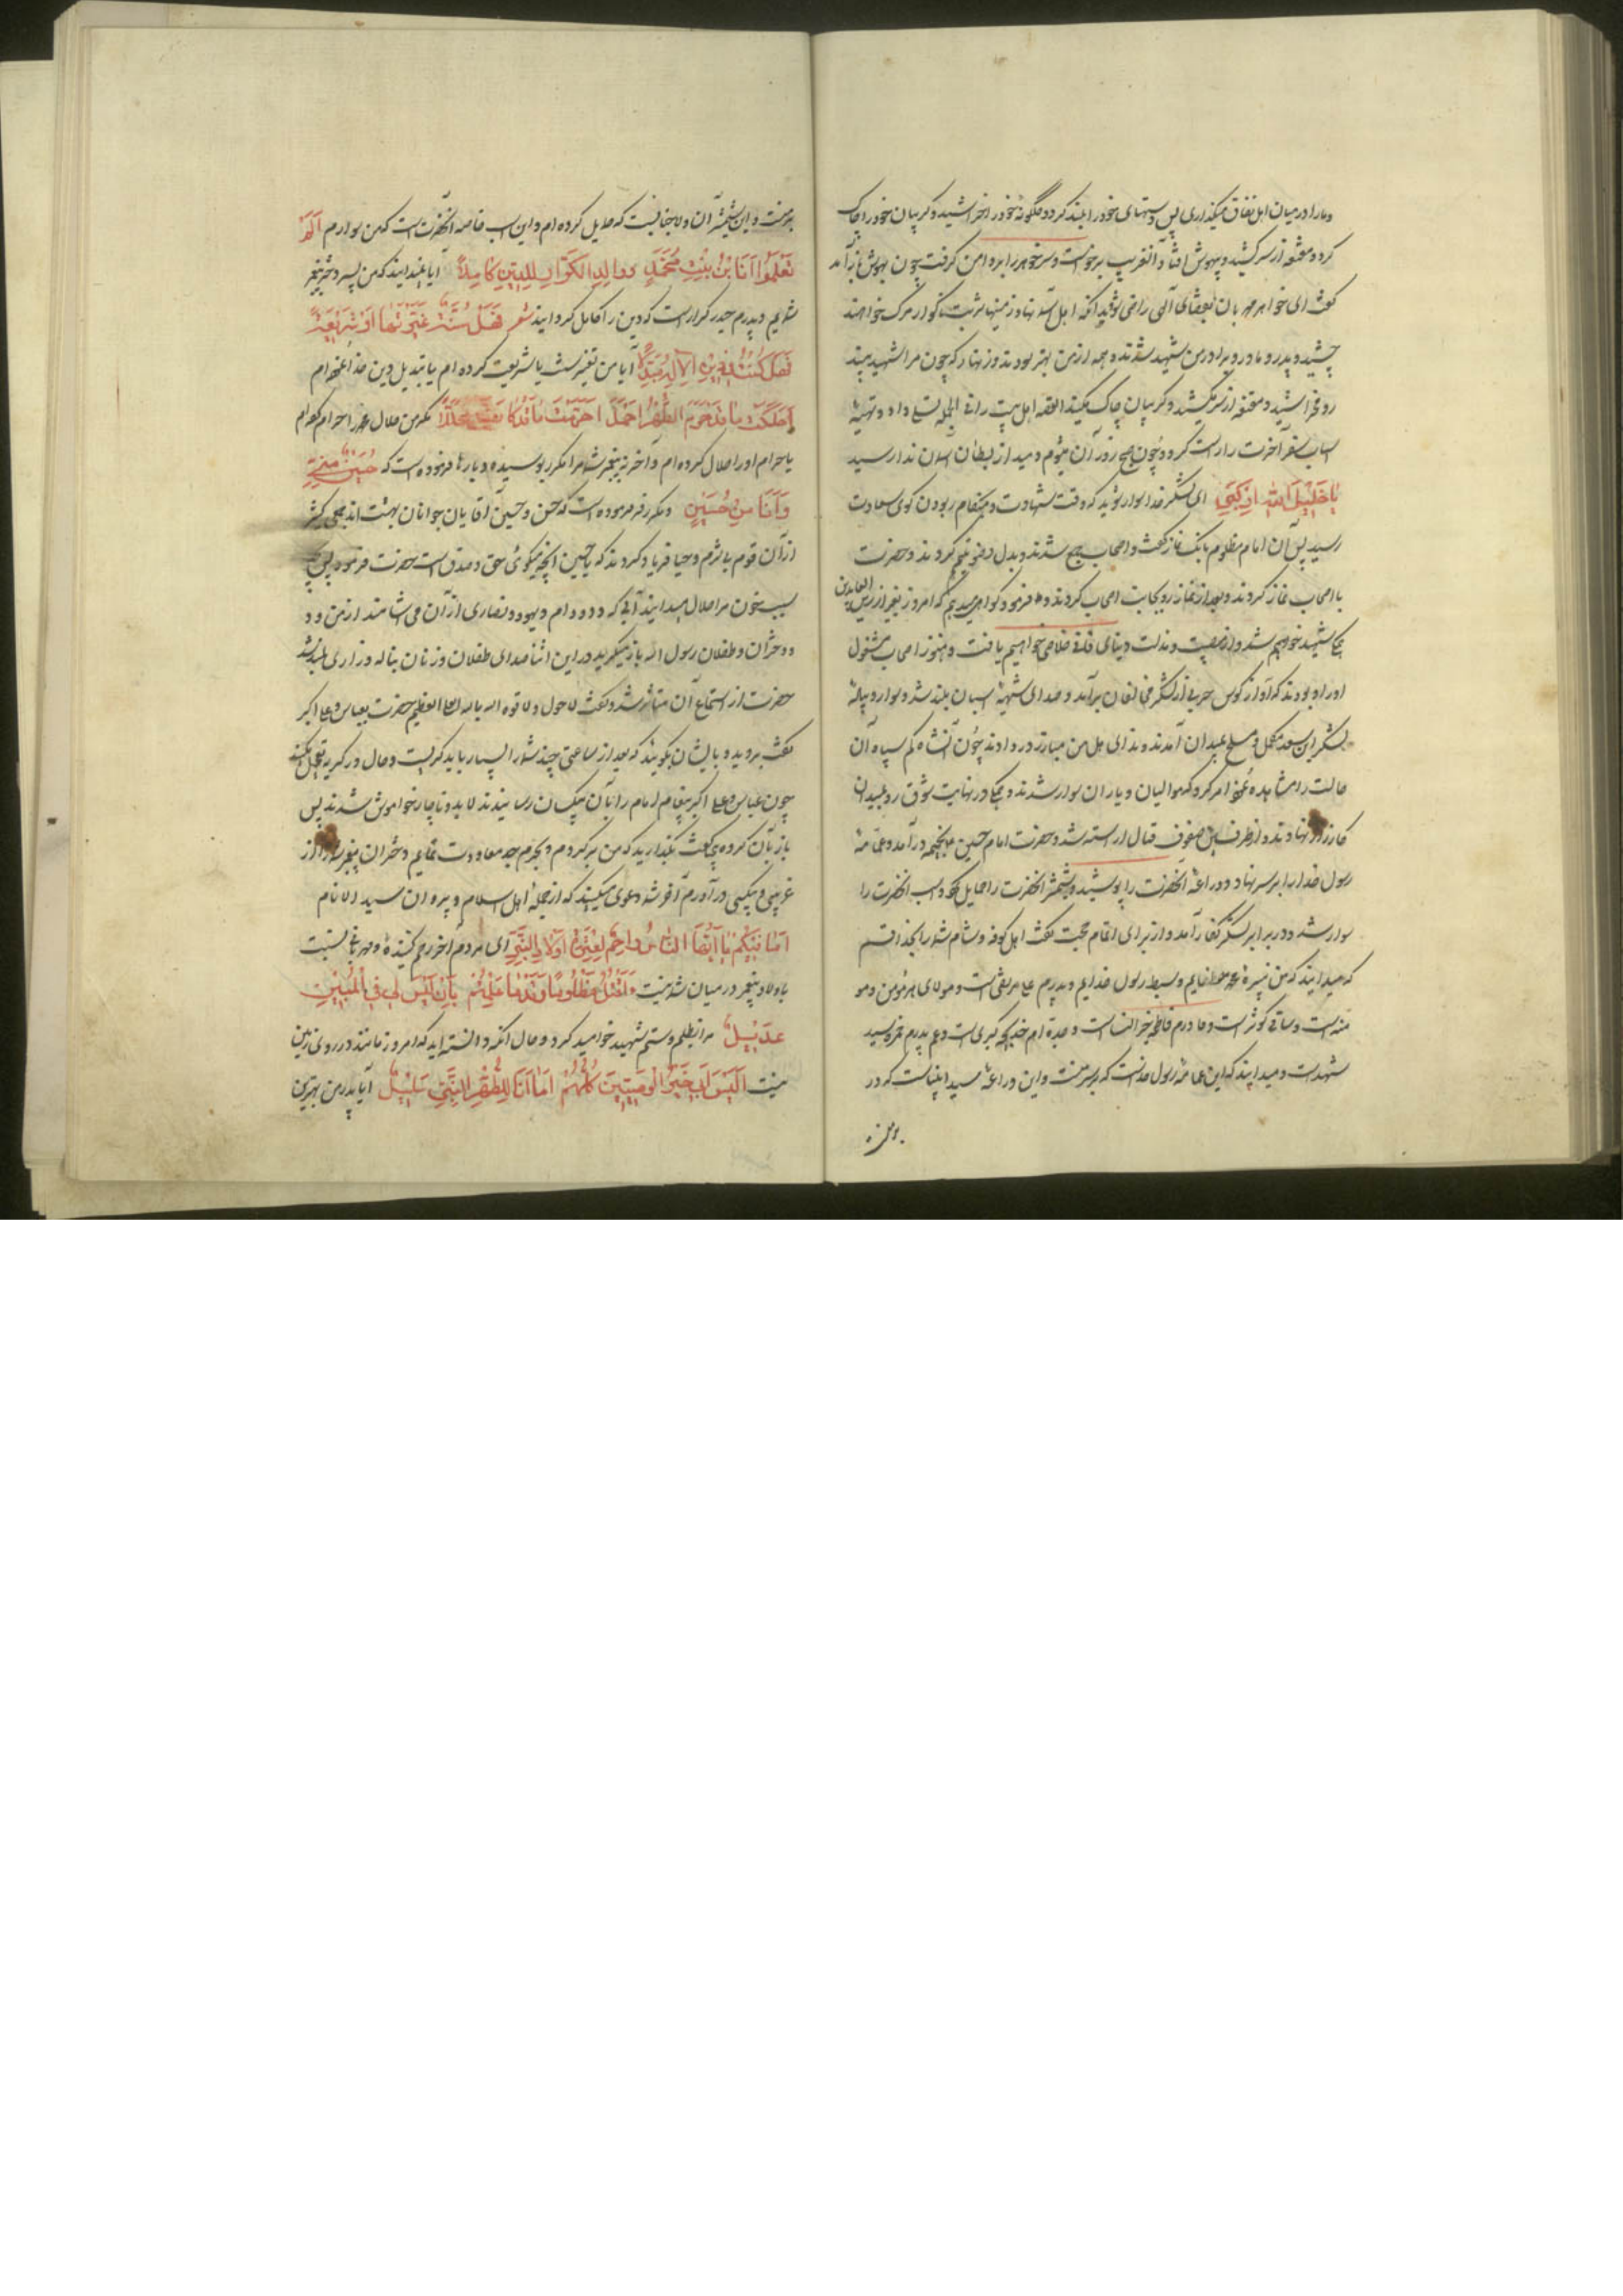 و مارا در میان اهل نفاق میگذاری پس دستهای خود را بلند کرد و گلگونه خود را خراشید و گریبان خود را چاک
کرد و مقنعه از سر کشید و بیهوش افتاد آنغریب برخواست و سر خواهر را بر دامن گرفت چون بهوش باز آمد
گفت ای خواهر مهربان بقضای الهی راضی شوید آنکه اهل آسمانها و زمینها شربت ناگوار مرگ خواهند
چشید و پدر و مادر و برادر من شهید شدند و همه از من بهتر بودند و زنهار که چون مرا شهید بینید
رو مخراشید و مقنعه از سر مکشید و گریبان چاک مکنید القصه اهل بیت را فی الجمله تسلی داد و تهیه
اسباب سفر آخرت را راست کرد و چون صبح روز آن میشوم دمید از بطنان آسمان ندا رسید
یا خلیل الله ارکبی ای لشکر خدا سوار شوید که وقت شهادت و هنگام ربودن گوی سعادت
رسید پس آن امام مظلوم بانگ نماز گفت و اصحاب جمع شدند و بدل وضو تیمم کردند و حضرت
با اصحاب نماز کردند و بعد از نماز رو بجانب اصحاب کردند و فرمود گواهی میدهم که امروز بغیر از زین العابدین
همگی شهید خواهیم شد و از مصیبت و مذلت دنیای فانی خلاصی خواهیم یافت و هنوز اصحاب مشغول
اوراد بودند که آواز کوس حربی از لشکر مخالفان برآمد و صدای شیهه اسبان بلند شد و سوار و پیاده
لشکر ابن سعد مکمل و مسلح بمیدان آمدند و ندای هل من مبارز در دادند چون آنشاه کم سپاه آن
حالت را مشاهده نمود امر کرد که موالیان و یاران سوار شدند و همگی در نهایت شوق رو بمیدان
کارزار نهادند و از طرفین صفوف قتال آراسته شد و حضرت امام حسین ع بخیمه در آمد و عمامه
رسول خدا را بر سر نهاد و دراعه آنحضرت را پوشید و شمشیر آنحضرت را حمایل نمود و اسب آنحضرت را
سوار شد و در برابر لشکر کفار آمد و از برای اتمام حجت گفت اهل کوفه و شام شما را بخدا قسم
که میدانید که من نبیره محمد مصطفایم و سبط رسول خدایم و پدرم علی مرتضی است و مولای هر مؤمن و مو
منه است و ساقی کوثر است و مادرم فاطمه خیر النسا است و جده ام خدیجه کبری است و عم پدرم حمزه سید
شهداست و میدانید که این عمامه رسول خداست که بر سر منست و این دراعه سید انبیاست که در
بر منست
بر منست و این شمشیر آن ولا جنابیست که حمایل کرده ام و این اسب خاصه آنحضرت است که من سوارم الم
تعلموا انا بن بنت محمد و والدی الکرار للدین کاملا آیا نمیدانید که من پسر دختر پیغمبر
شمایم و پدرم حیدر کرار است که دین را کامل گردانید شعر فهل سنة غیرتها او شریعة
فهل کنت فی دین الاله مبدلا آیا من تغییر سنت یا شریعت کرده ام یا تبدیل دین خدا نموده ام
احللت ما قد حرم الطهر احمد احرمت ما قد کان محللا مگر من حلال محمد را حرام کرده ام
یا حرام او را حلال کرده ام و آخر نه پیغمبر شما مرا مکرر بوسیده و بارها فرموده است که حسین منی
و انا من حسین و مکرر فرموده است که حسن و حسین آقایان جوانان بهشت اند جمعی کثیر
از آن قوم بیشرم و حیا فریاد کردند که یا حسین آنچه میگوئی حق و صدق است حضرت فرمود پس بچه
سبب خون مرا حلال میدانید آبی که دد و دام و یهود و نصاری از آن می آشامند از من و
دختران و طفلان رسول الله باز میگیرید در این اثنا صدای طفلان و زنان بناله و زاری بلند شد
حضرت از استماع آن متأثر شد و گفت لا حول و لا قوه الا بالله العلی العظیم حضرت بعباس و علی اکبر
گفت بروید و بایشان بگوئید که بعد از ساعتی چند شما را بسیار باید گریست و حال در گریه تعجیل مکنید
چون عباس و علی اکبر پیغام امام را بآن بیکسان رسانیدند لابد و ناچار خواموش شدند پس
باز بآن گروه گفت بگذارید که من برگردم و بحرم جد معاودت نمایم و دختران پیغمبر شما را از
غریبی و بیکسی در آورم آخر شما دعوی میکنید که از جمله اهل اسلام و پیروان سید الانام
اما بینکم یا ایها الناس راحم لعترة اولاد النبی ای مردم آخر رحم کننده و مهربانی نسبت
باولاد پیغمبر در میان شما نیست اأقتل مظلوما و قدما علمتم بان لیس لی فی العالمین
عدیل مرا بظلم و ستم شهید خواهید کرد و حال آنکه دانسته اید که امروز مانند من در روی زمین
نیست الیس ابی خیر الوصیین کلهم اما انا للطهر النبی سلیل آیا پدر من بهترین